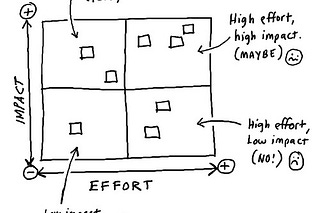 High effort,
high impact.
(MAYBE)
IMPACT
High effort,
Low impact
(NO!)
EFFORT
Low impact